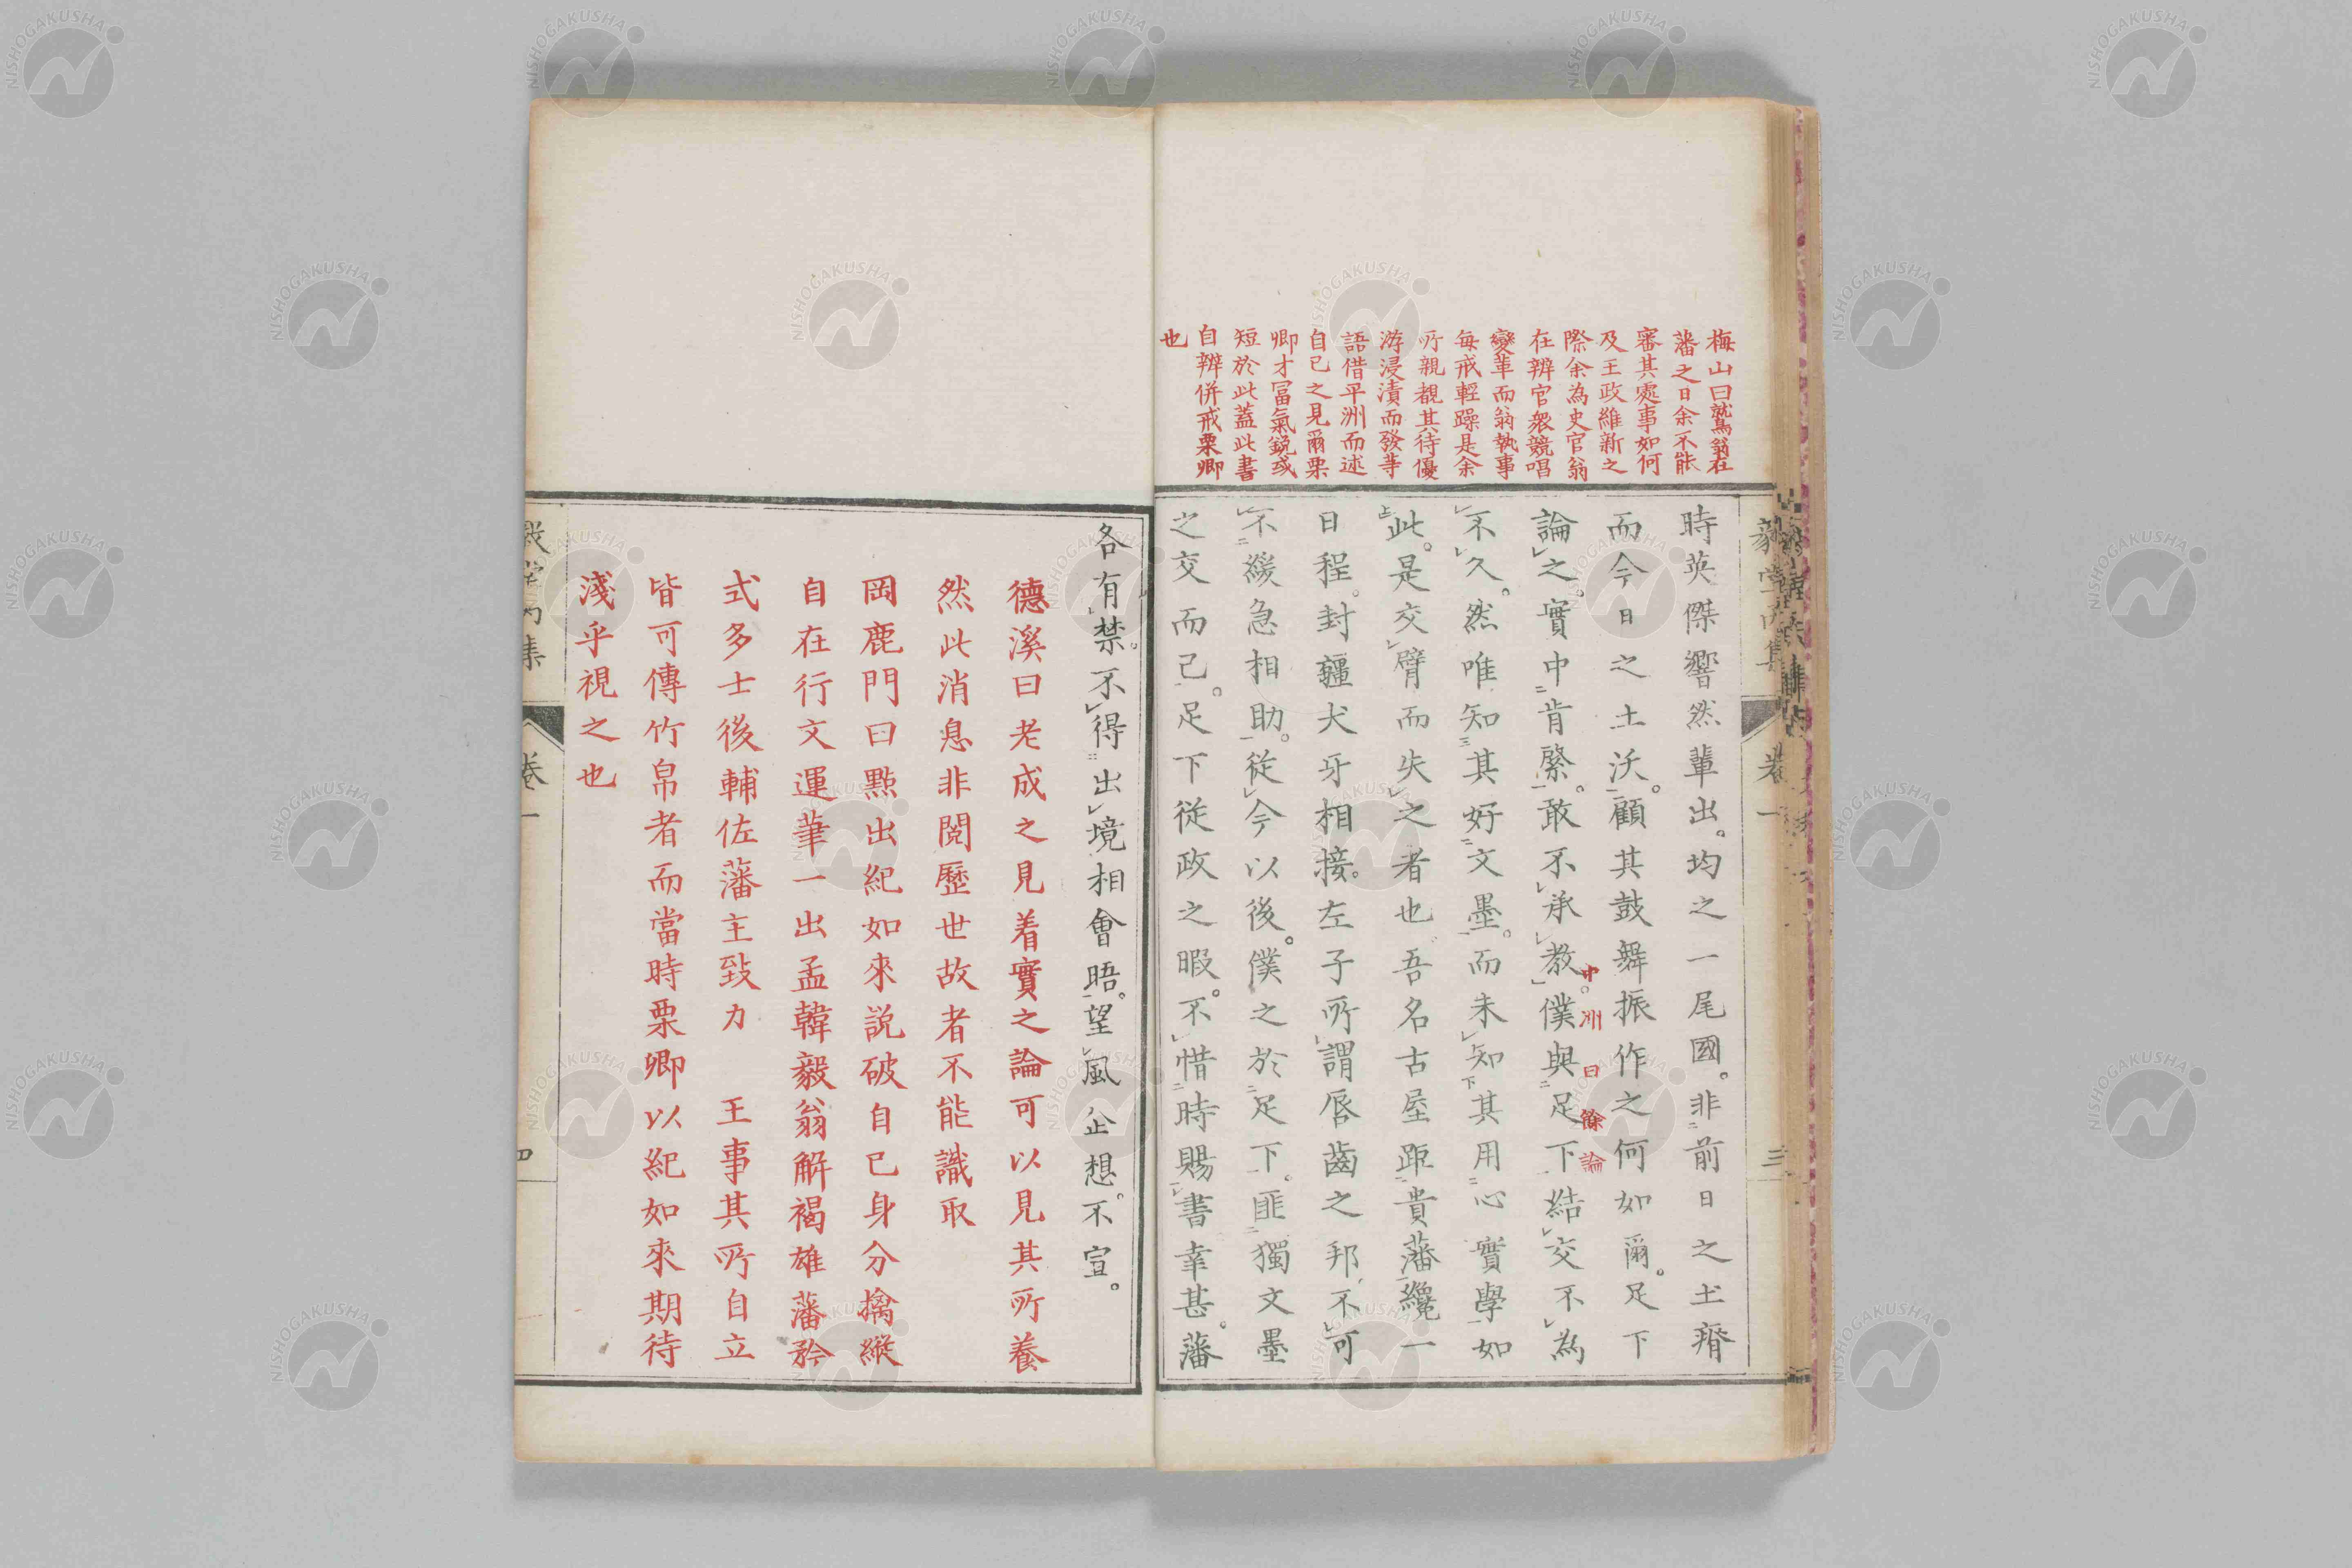 梅山曰鷲翁在
藩之日余不能
審其處事如何
及王政維新之
際余為史官翁
在辨官衆競唱
變革而翁執事
每戒輕躁是余
所親覩其待優
游浸漬而發等
語借平洲而述
自己之見爾栗
卿才冨氣銳或
短於此蓋此書
自辨併戒栗卿
也
時英傑響然輩出。均之一尾國。非前日之土瘠
而今日之土沃。顧其鼓舞振作之何如爾。足下
論之。實中肯綮。敢不承教。僕與足下結交不為
中洲曰餘論
不久。然唯知其好文墨。而未知其用心實學如
此。是交臂而失之者也吾名古屋距貴藩纔一
日程。封疆犬牙相接。左子所謂唇齒之邦、不可
不緩急相助。從今以後。僕之於足下。匪獨文墨
之交而已。足下從政之暇。不惜時賜書幸甚。藩
卷一
三
各有禁。不得出境相會晤。望風企想。不宣。
德溪曰老成之見着實之論可以見其所養
然此消息非閱歷世故者不能識取
岡鹿門曰點出紀如來説破自己身分擒縱
自在行文運筆一出孟韓毅翁解褐雄藩矜
式多士後輔佐藩主致力　王事其所自立
皆可傳竹帛者而當時栗卿以紀如來期待
淺乎視之也
卷一
四
NISHOGAKUSHA